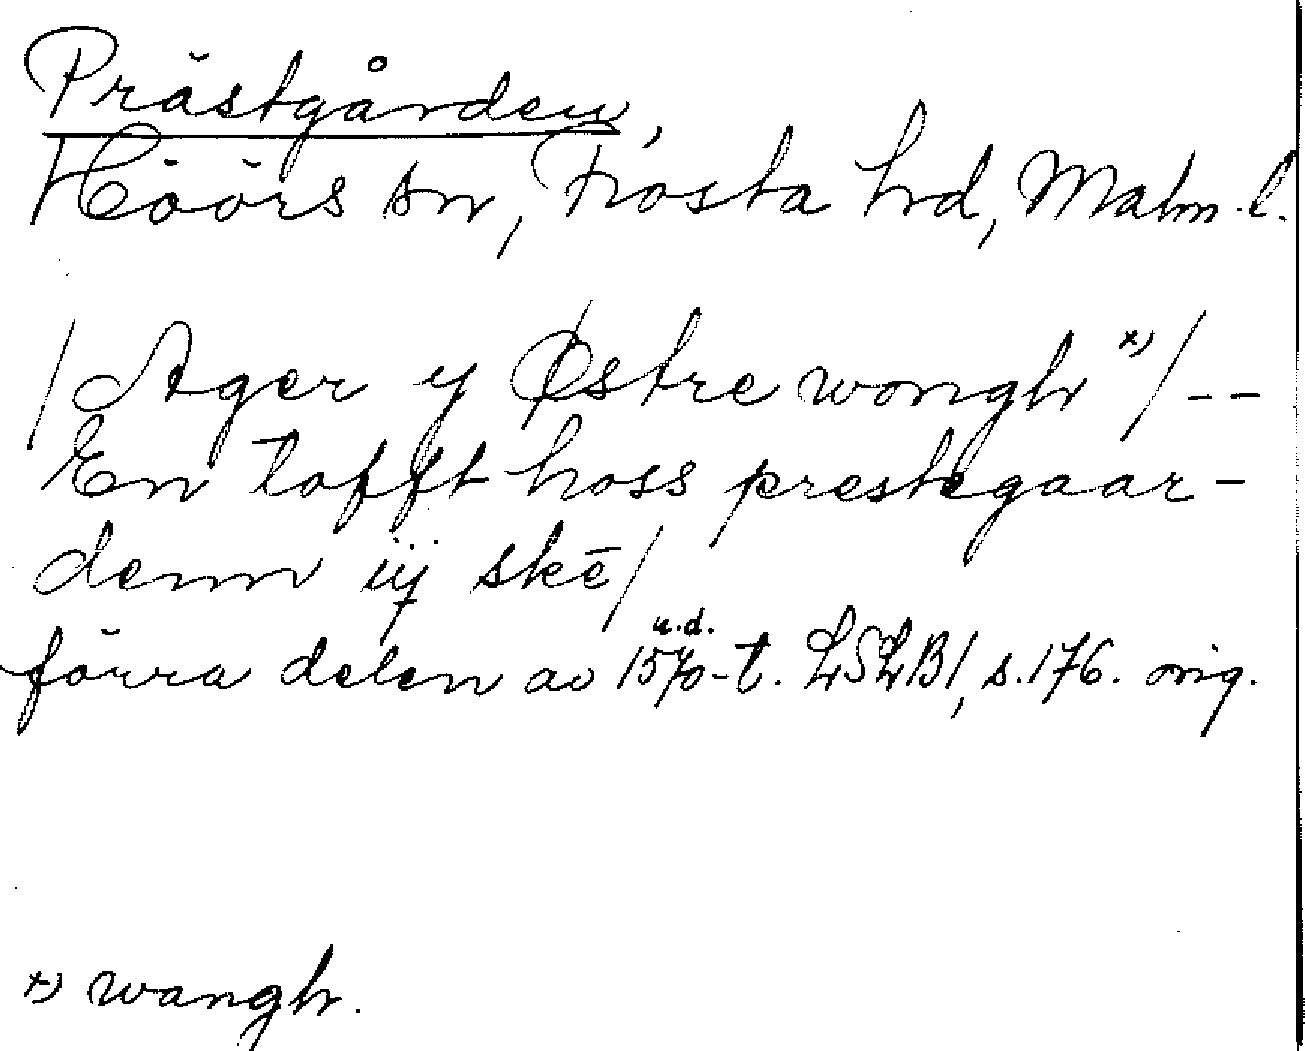 Prästgården,
Höörs sn, Frosta hrd, Malm. l.
/Ager y Østre wongh *)/ - -
En tofft hoss prestegaar-
denn iij skē/
förra delen av 1570-t. u.d. LSLB1, s. 176. orig.
*) wangh.